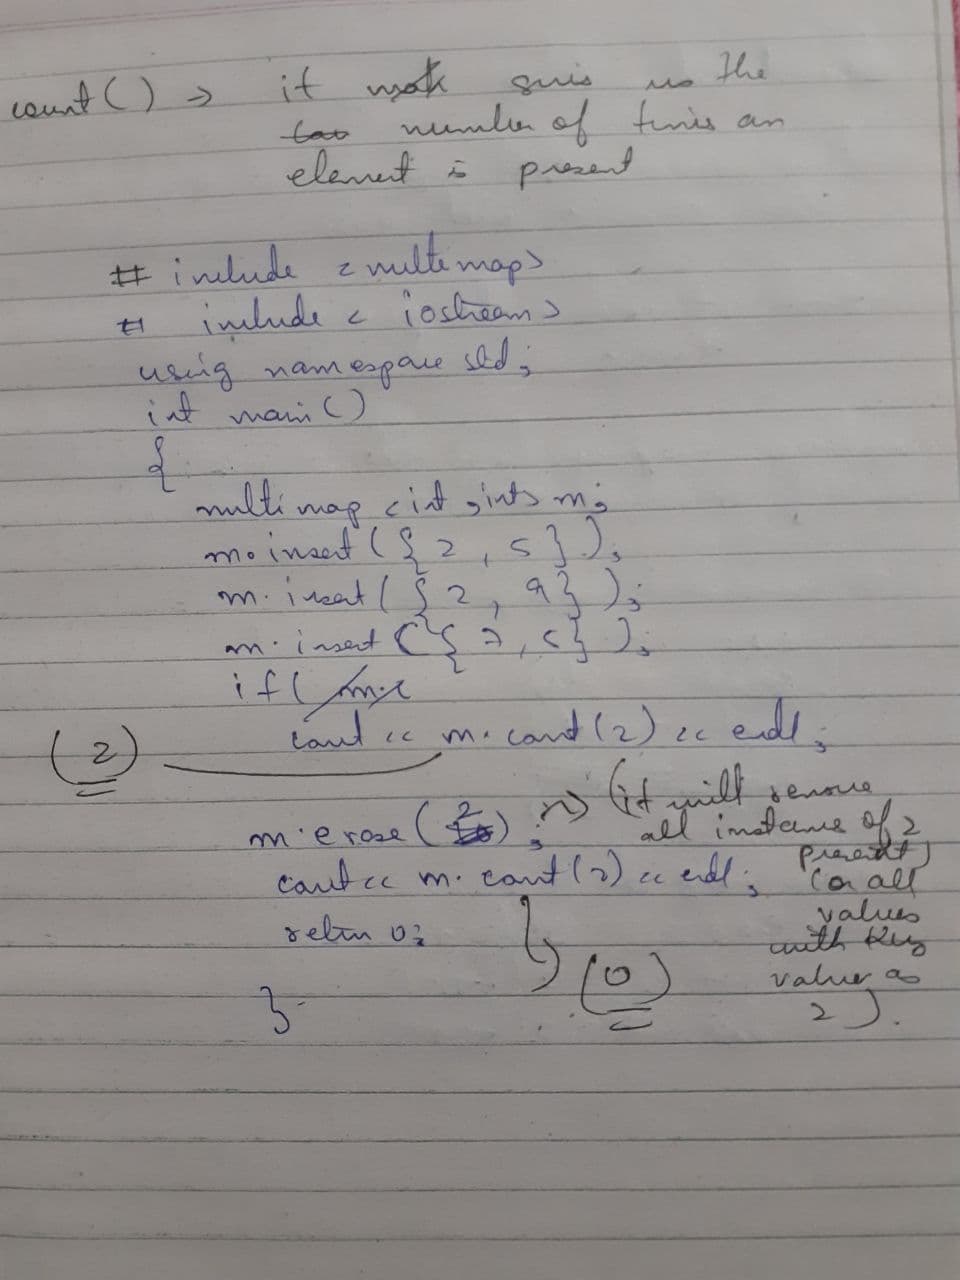 count() → it gives us the
number of times an
element is present
# include <multimap>
# include <iostream>
using namespace std;
int main()
{
multimap <int, int> m;
m.insert({2, 5});
m.insert({2, 9});
m.insert({7, 5});
if(
cout << m.count(2) << endl;
(2)
m.erase(2); → (it will remove
all instance of 2
present)
cout << m.count(2) << endl; (or all
values
return 0; with key
(0) value as
} 2).